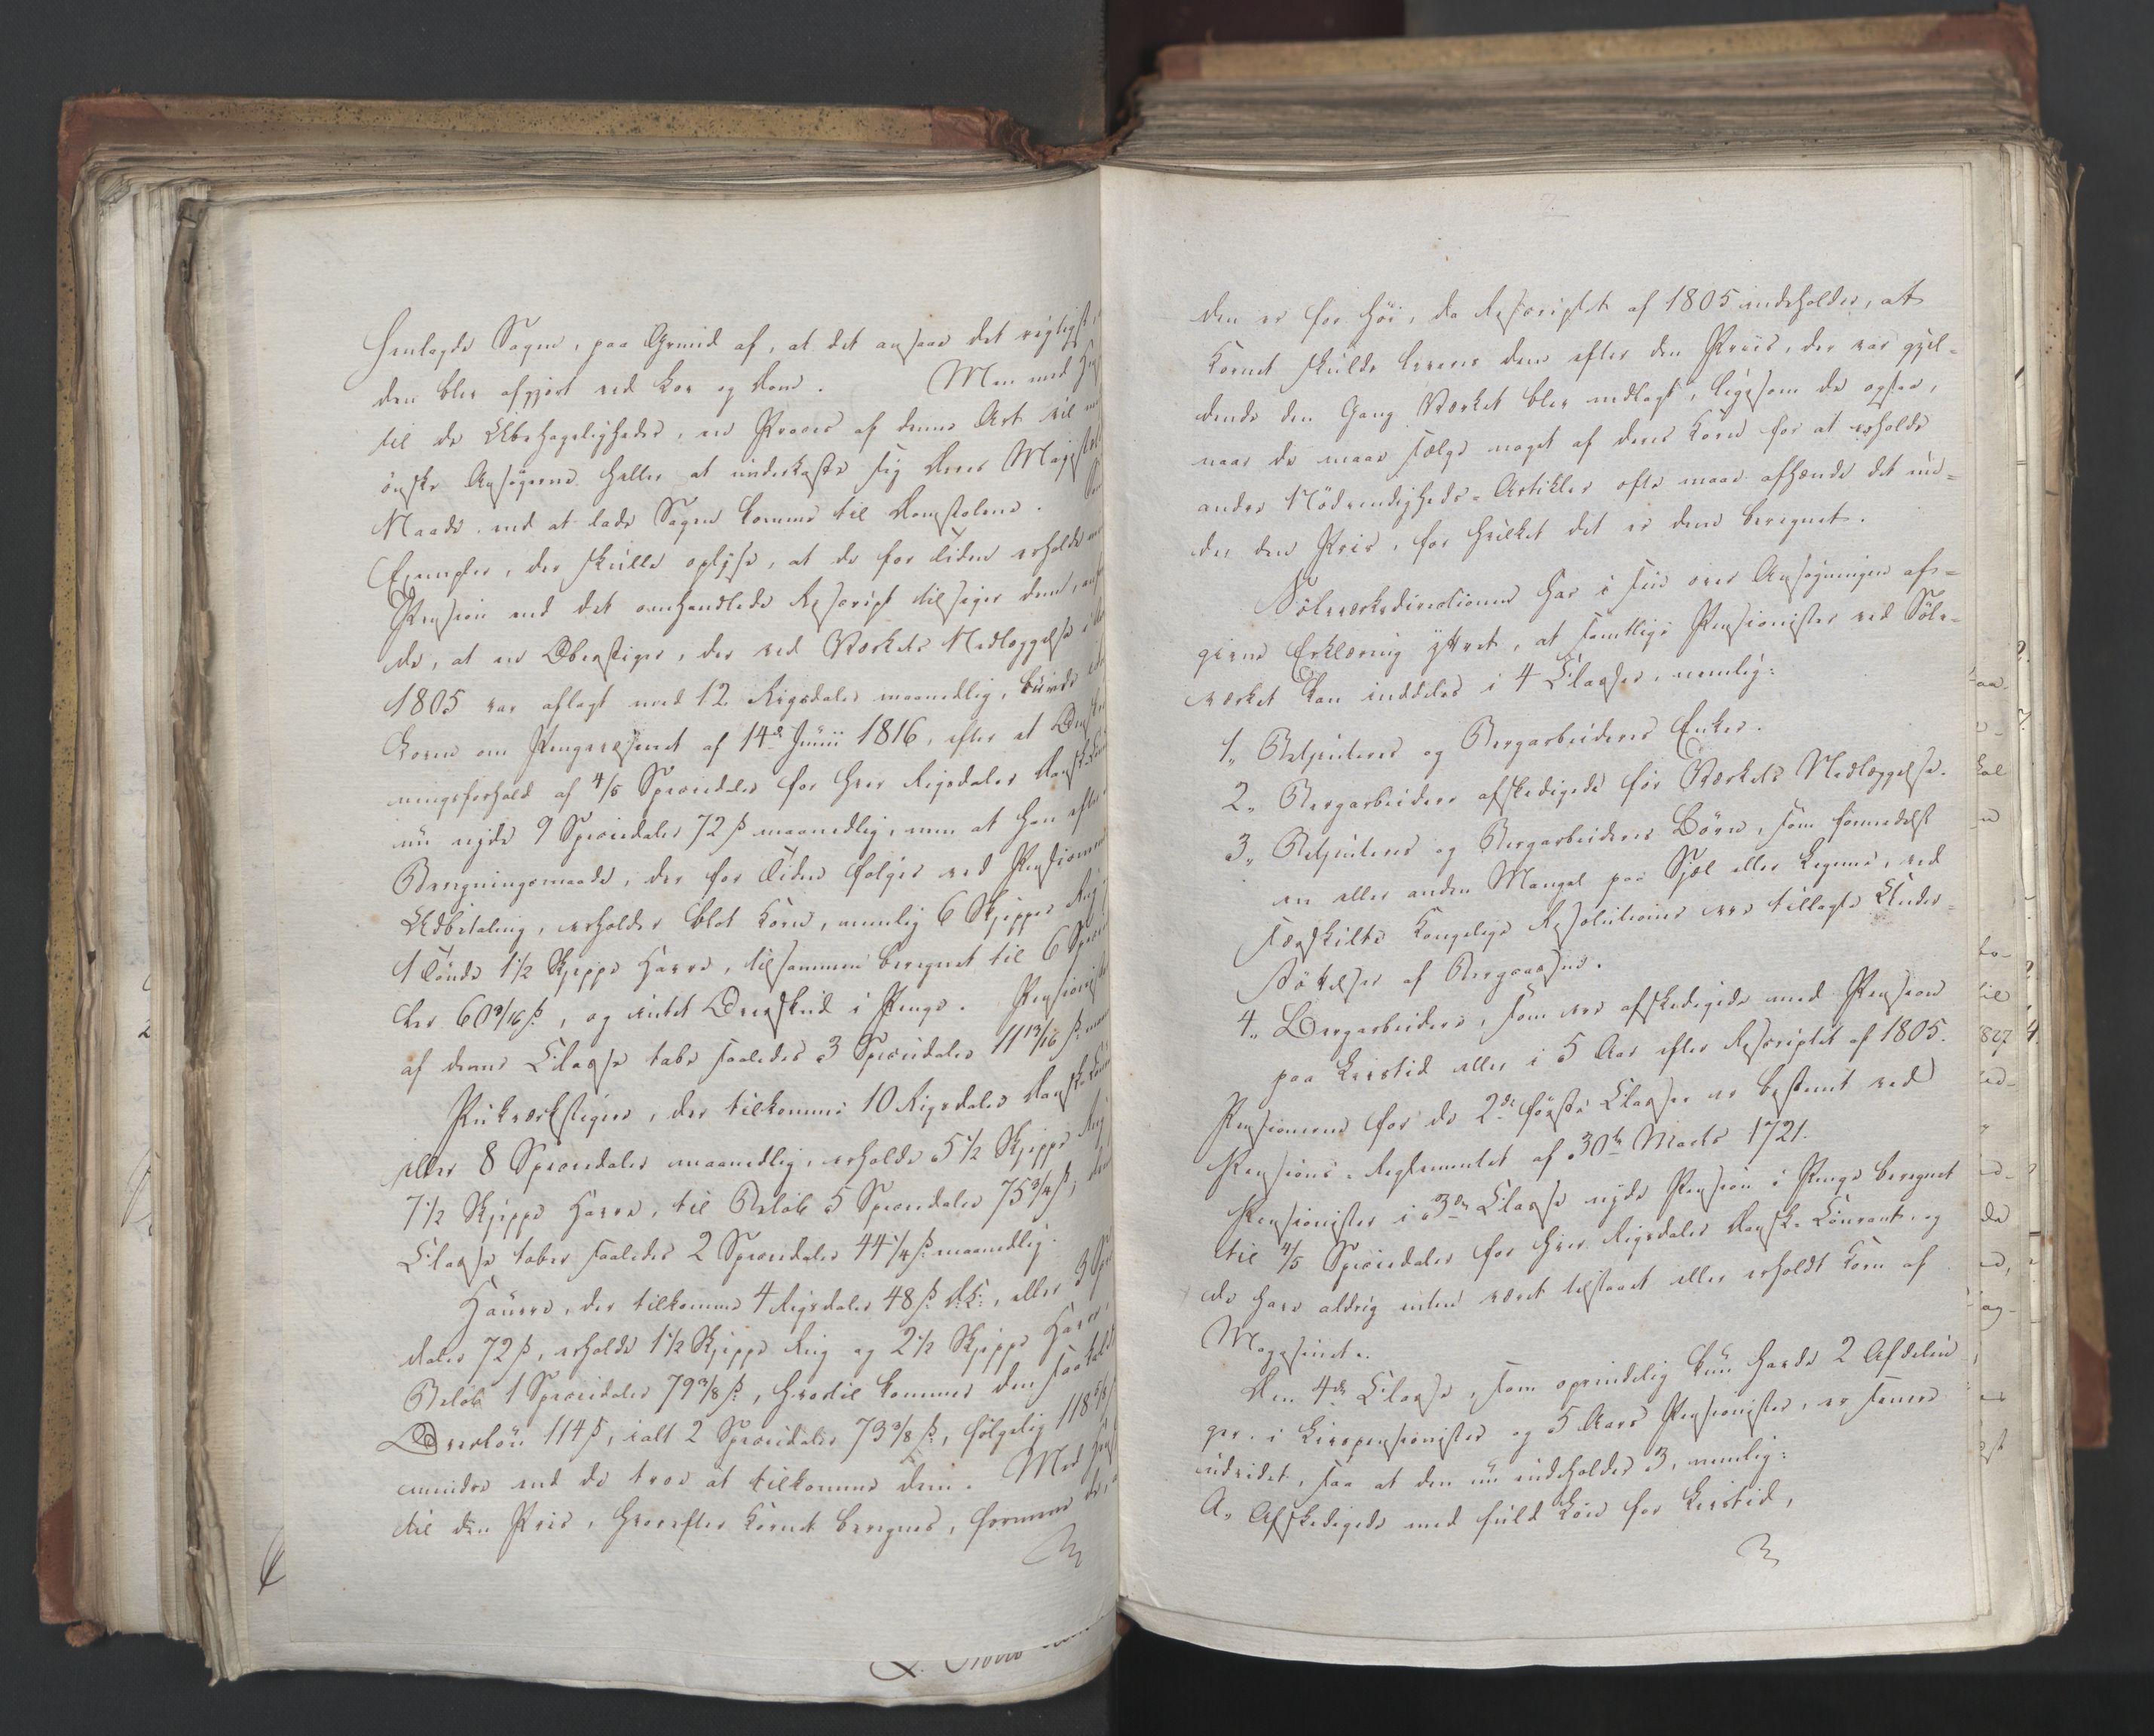 henlagde Sagen, paa Grund af, at det ansaae det rigtigst,
den blev afgjort ved Lov og Dom. Men med Hen
til de Ubehageligheder, en Proces af denne Art vil
ønske Ansøgerne heller at underkaste sig Deres Majestæts
Naade end at lade Sagen komme til Domstolene.
Exempler, der skulle oplyse, at de for Tiden erholde
Pension end det omhandlede Rescript tilsiger dem,
de, at en Oberstiger, der ved Værkets Nedlæggelse i
1805 var aflagt med 12 Rigsdaler maanedlig, burde
Loven om Pengevæsenet af 14de Junii 1816, efter et
ningsforhold af 4/5 Speciedaler for hver Rigsdaler Dansk
nu nyde 9 Speciedaler 72 ß maanedlig, men at han efter
Beregningsmaade, der for Tiden følges ved Pensionernes
Udbetaling, erholder blot Korn, nemlig 6 Skjepper Rug
1 Tønde 1 1/2 Skjeppe Havre, tilsammen beregnet til 6 Specie
ler 60 3/16 ß, og intet Overskud i Penge. Pensionister
af denne Classe tabe saaledes 3 Speciedaler 11 13/16 ß
Pukværkstigere, der tilkomme 10 Rigsdaler Dansk
eller 8 Speciedaler maanedlig, erholde 5 1/2 Skjeppe Rug
7 1/2 Skjeppe Havre, til Beløb 5 Speciedaler 75 3/4 ß,
Classe taber saaledes 2 Speciedaler 44 1/4 ß maanedlig.
Hauere, der tilkomme 4 Rigsdaler 48 ß D.C., eller 3
daler 72 ß, erholde 1 1/2 Skjeppe Rug og 2 1/2 Skjeppe Havre
Beløb 1 Speciedaler 79 3/8 ß, hvortil kommer den saakaldte
Overløn 114 ß, ialt 2 Speciedaler 73 3/8 ß, følgelig 118 5/8
mindre end de troe at tilkomme dem. Med Hen
til den Priis, hvorefter Kornet beregnes, formene de,
den er for høi, da Rescriptet af 1805 indeholder, at
Kornet skulde leveres dem efter den Priis, der var gjel-
dende den Gang Værket blev nedlagt, ligesom de ogsaa,
naar de maae sælge noget af deres Korn for at erholde
andre Nødvendigheds-Artikler ofte maae afhænde det un-
der den Priis, for hvilket det er dem beregnet.
Sølvværksdirectionen har i sin over Ansøgningen af-
givne Erklæring yttret, at samtlige Pensionister ved Sølv-
værket kan inddeles i 4 Classer, nemlig:
1, Betjenteres og Bergarbeideres Enker.
2, Bergarbeidere afskedigede før Værkets Nedlæggelse.
3, Betjenteres og Bergarbeideres Børn, som formedelst
en eller anden Mangel paa Sjæl eller Legeme, ved
særskilte Kongelige Resolutioner ere tillagte Under-
støttelser af Bergcassen.
4, Bergarbeidere, som ere afskedigede med Pension
paa Livstid eller i 5 Aar efter Rescriptet af 1805.
Pensionerne for de 2de første Classer er bestemt ved
Pensions-Reglementet af 30te Marts 1721.
Pensionister i 3die Classe nyde Pension i Penge beregnet
til 4/5 Speciedaler for hver Rigsdaler Dansk Courant, og
de have aldrig enten været tilstaaet eller erholdt Korn af
Magasinet.
Den 4de Classe, som oprindelig kun havde 2 Afdelin
ger, i Livspensionister og 5 Aars Pensionister, er senere
udvidet, saa at den nu indeholder 3, nemlig:
A, Afskedigede med fuld Løn for Livstid,